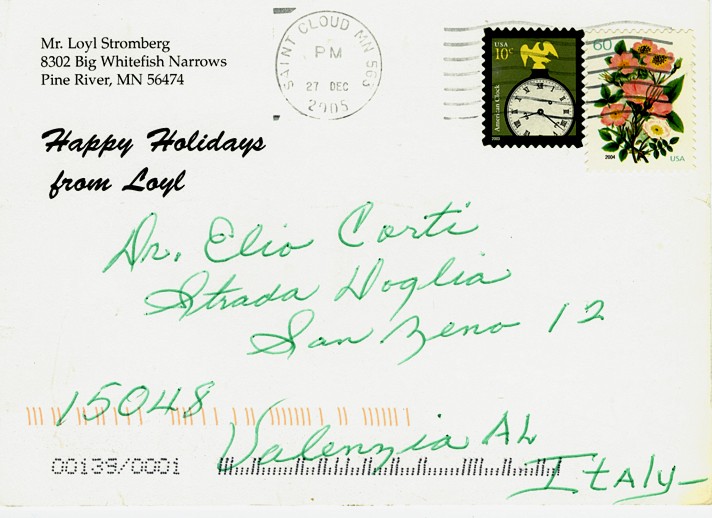 Mr. Loyl Stromberg
8302 Big Whitefish Narrows
Pine River, MN 56474
SAINT CLOUD MN 563
PM
27 DEC
2005
USA
10c
American Clock
60
2004
USA
Happy Holidays
from Loyl
Dr. Elio Corti
Strada Doglia
San Zeno 12
15048
Valenzia AL
Italy
00139/0001